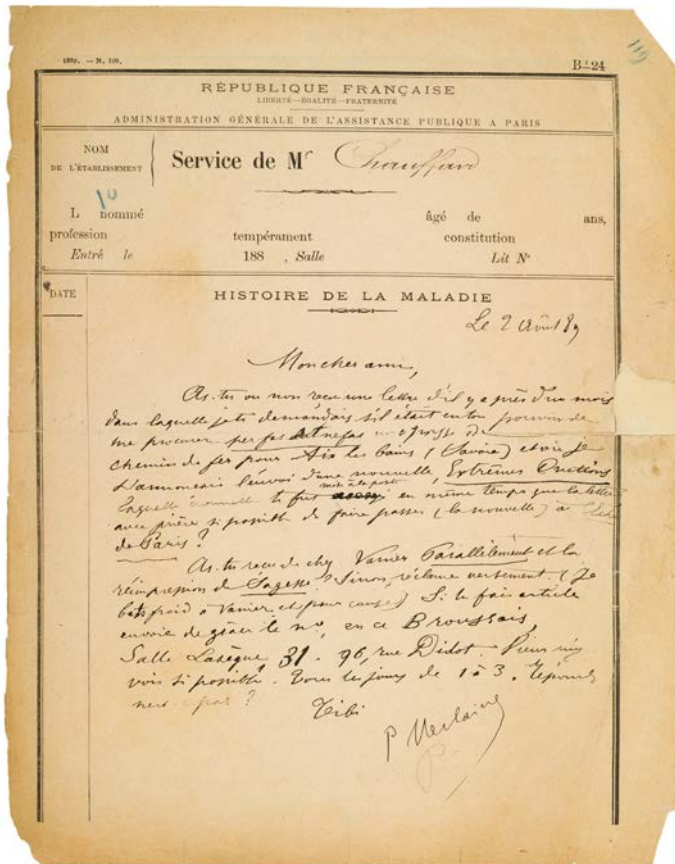 119
188 . — N. 100.
B-24
RÉPUBLIQUE FRANÇAISE
LIBERTÉ—ÉGALITÉ—FRATERNITÉ
ADMINISTRATION GÉNÉRALE DE L'ASSISTANCE PUBLIQUE A PARIS
NOM
DE L'ÉTABLISSEMENT
Service de Mr Chauffard
L nommé âgé de ans,
profession tempérament constitution
Entré le 188 , Salle Lit No
DATE
HISTOIRE DE LA MALADIE
Le 2 Août 89
Mon cher ami,
As-tu ou non reçu une lettre d'il y a près d'un mois
dans laquelle je te demandais s'il était en ton pouvoir de
me procurer per fas et nefas de
chemin de fer pour Aix les bains (Savoie) et où je
t'annonçais l'envoi d'une nouvelle, Extrêmes Onctions
laquelle nouvelle te fut mise à la poste en même temps que la lettre
avec prière si possible de faire passer (la nouvelle) à
de Paris ?
As-tu reçu de chez Vanier Parallèlement et la
réimpression de Sagesse ? Sinon, réclame vertement. (Je
bats froid à Vanier et pour cause) Si tu fais article
envoie de grâce le no, en ce Broussais,
Salle Lasègue 31. 96, rue Didot. Viens me
voir si possible. Tous les jours de 1 à 3. Réponds
n'est-ce pas ?
Tibi
P Verlaine